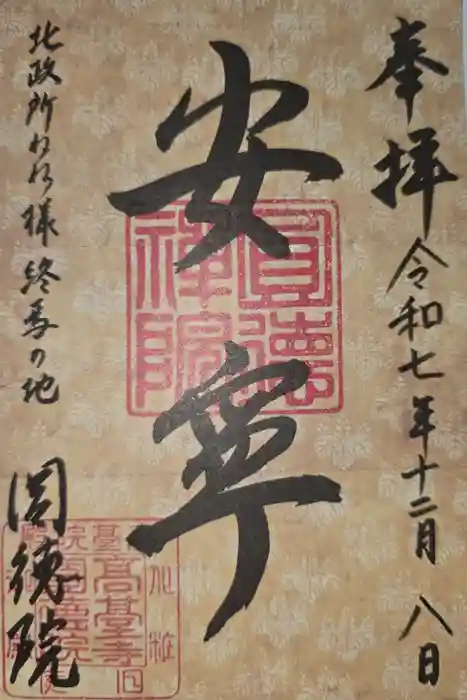 奉拝
令和七年十二月八日
安寧
圓徳禅院
北政所ねね様終焉の地
圓徳院
高臺寺